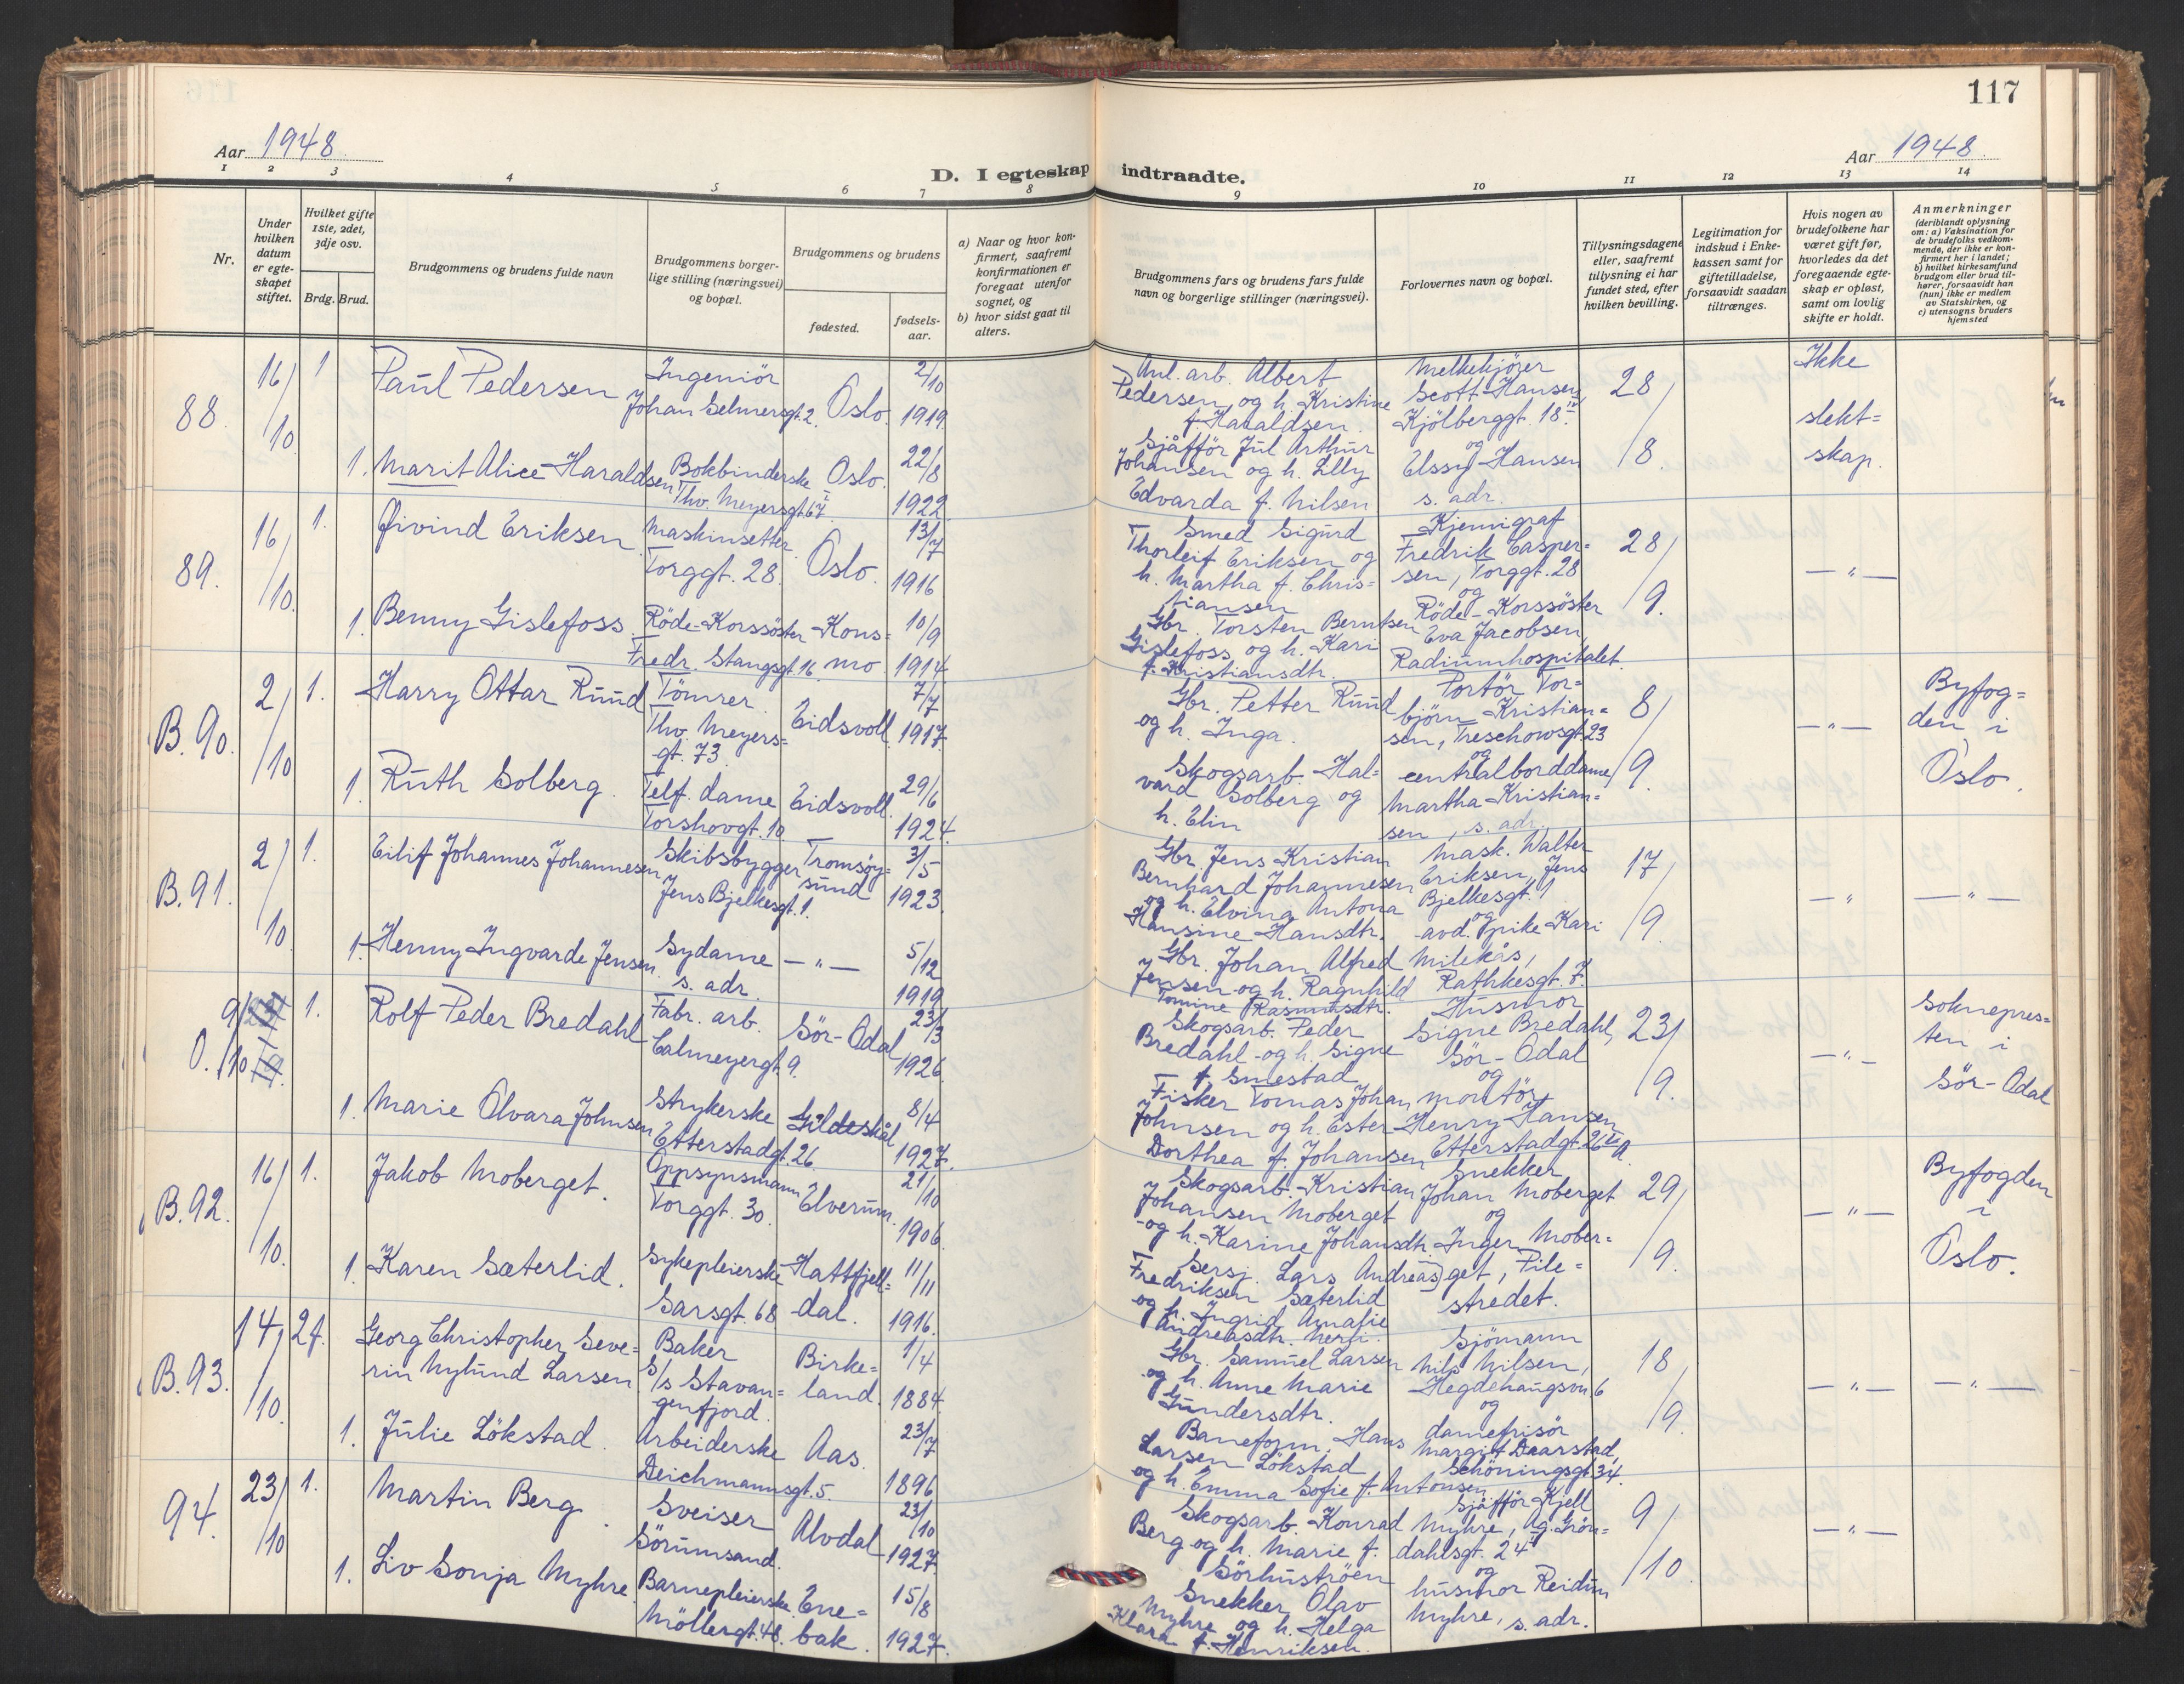 117
Aar 1948
D. I egteskap indtraadte.
Aar 1948.
1 2 3 4 5 6 7 8 9 10 11 12 13 14
Nr.
Under hvilken datum er egteskapet stiftet.
Hvilket gifte 1ste, 2det, 3dje osv.
Brdg. Brud.
Brudgommens og brudens fulde navn
Brudgommens borgerlige stilling (næringsvei) og bopæl.
Brudgommens og brudens
fødested.
fødselsaar.
a) Naar og hvor konfirmert, saafremt konfirmationen er foregaat utenfor sognet, og
b) hvor sidst gaat til alters.
Brudgommens fars og brudens fars fulde navn og borgerlige stillinger (næringsvei).
Forlovernes navn og bopæl.
Tillysningsdagene eller, saafremt tillysning ei har fundet sted, efter hvilken bevilling.
Legitimation for indskud i Enkekassen samt for giftetilladelse, forsaavidt saadan tiltrænges.
Hvis nogen av brudefolkene har været gift før, hvorledes da det foregaaende egteskap er opløst, samt om lovlig skifte er holdt.
Anmerkninger
(deriblandt oplysning om: a) Vaksination for de brudefolks vedkommende, der ikke er konfirmert her i landet; b) hvilket kirkesamfund brudgom eller brud tilhører, forsaavidt han (hun) ikke er medlem av Statskirken, og c) utensogns bruders hjemsted
88.
16/10
1
Paul Pedersen
Ingeniör
Johan Selmersgt. 2.
Oslo.
2/10
1919.
Anl. arb. Albert
Pedersen og h. Kristine
f. Haraldsen.
Melkekjører
Scott-Hansen,
Kjölberggt. 18 IV.
og
28/8.
Ikke
slekt=
skap.
1.
Marit Alice Haraldsen
Bokbinderske
Thv. Meyersgt. 67 I
Oslo.
22/8
1922.
Sjåffør Jul Arthur
Johansen og h. Lilly
Edvarda f. Nilsen
Elssy Hansen
s. adr.
89.
16/10.
1.
Øivind Eriksen
Maskinsetter
Torggt. 28.
Oslo.
13/7
1916
Smed Sigurd
Thorleif Eriksen og
h. Martha f. Chris=
tiansen
Kjemigraf
Fredrik Casper=
sen, Torggt. 28
og
28/9.
— " —
1.
Benny Gislefoss
Röde-Korssöster
Fredr. Stangsgt. 16
Kons=
mo
10/9
1914
Gbr. Torsten Berntsen
Gislefoss og h. Kari
f. Kristiansdtr.
Röde-Korssöster
Eva Jacobsen,
Radiumhospitalet.
B. 90.
2/10
1.
Harry Ottar Ruud
Tömrer
Thv. Meyers=
gt. 73.
Eidsvoll
7/7
1917
Gbr. Petter Ruud
og h. Inga.
Portör Tor=
björn Kristian=
sen, Treschowsgt. 23
og
8/9.
— " —
Byfog=
den i
Oslo.
1.
Ruth Solberg.
Telf. dame
Torshovgt. 10
Eidsvoll.
29/6
1924.
Skogsarb. Hal=
vard Solberg og
h. Elin
centralborddame
Martha Kristian=
sen, s. adr.
B. 91.
2/10.
1.
Eilif Johannes Johannesen
Skibsbygger
Jens Bjelkesgt. 1.
Tromsöy=
sund
3/5
1923.
Gbr. Jens Kristian
Bernhard Johannesen
og h. Elvina Antona
Hansine Hansdtr.
Mask. Walter
Eriksen, Jens
Bjelkesgt. 1
og
17/9.
— " —
— " —
1.
Henny Ingvarde Jensen.
Sydame
s. adr.
— " —
5/12
1919
Gbr. Johan Alfred
Jensen og h. Ragnhild
Tomine Rasmusdtr.
avd. Kari
Milekås,
Rathkesgt. 7.
O.
9/10
1.
Rolf Peder Bredahl
Fabr. arb.
Calmeyergt. 9.
Sör-Odal
23/3
1926.
Skogsarb. Peder
Bredahl og h. Signe
f. Smestad
Husmor
Signe Bredahl,
Sör-Odal
og
23/9.
— " —
Sokneprес=
ten i
Sör-Odal
1.
Marie Olvara Johnsen
Strykerske
Etterstadgt. 26.
Gildeskål
8/4
1927.
Fisker Tomas Johan
Johnsen og h. Ester
Dorthea f. Johansen
montör
Henry Hansen
Etterstadgt. 26
B. 92.
16/10.
1.
Jakob Moberget.
Oppsynsmann
Torggt. 30.
Elverum.
21/10
1906.
Skogsarb. Kristian
Johansen Moberget
og h. Karine Johansdtr.
Snekker
Johan Moberget
og
29/9.
— " —
Byfogden
i
Oslo.
1.
Karen Sæterlid.
Sykepleierske
Sarsgt. 68
Hattfjell=
dal.
11/11
1916.
Sersj. Lars Andreas
Fredriksen Sæterlid
og h. Ingrid Amalie
Andreasdtr.
Inger Mober=
get, Pile=
stredet.
B. 93.
14/10.
2f.
Georg Christopher Seve=
rin Nylund Larsen
Baker
S/s Stavan=
gerfjord.
Birke=
land.
1/4
1884.
Gbr. Samuel Larsen
og h. Anne Marie
Gundersdtr.
Sjömann
Nils Nilsen,
Hegdehaugsvn 6
og
18/9.
— " —
— " —
1.
Julie Lökstad.
Arbeiderske
Deichmannsgt. 5.
Aas.
23/7
1896
Baneform. Hans
Larsen Lökstad
og h. Emma Sofie f. Antonsen
damefrisör
Margit Daarstad,
Schöningsgt. 34.
94.
23/10
1.
Martin Berg.
Sveiser
Sörumsand.
Alvdal
23/10
1927
Skogsarb. Konrad
Berg og h. Marie f.
Sörhuströen
Sjåffør Kjell
Myhre, Ag. Grön=
dahlsgt. 24
og
9/10.
— " —
1.
Liv Sonja Myhre.
Barnepleierske
Möllergt. 48.
Ene=
bak.
15/8
1927.
Snekker Olav
Myhre og h. Helga
Klara f. Henriksen.
husmor Reidun
Myhre, s. adr.